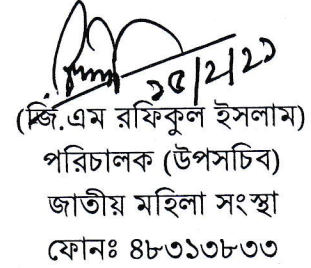 ১৫/২/২১
(জি.এম রফিকুল ইসলাম)
পরিচালক (উপসচিব)
জাতীয় মহিলা সংস্থা
ফোনঃ ৪৮৩১৩৮৩৩